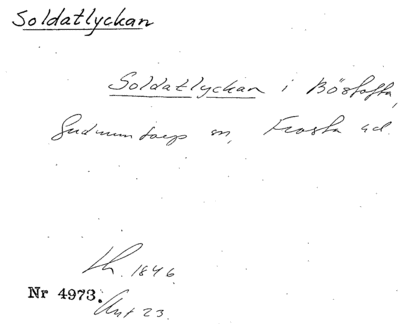 Soldatlyckan
Soldatlyckan i Böstofta,
Gudmuntorp sn, Frosta hd.
Lh. 1846.
Nr 4973.
Ant 23.